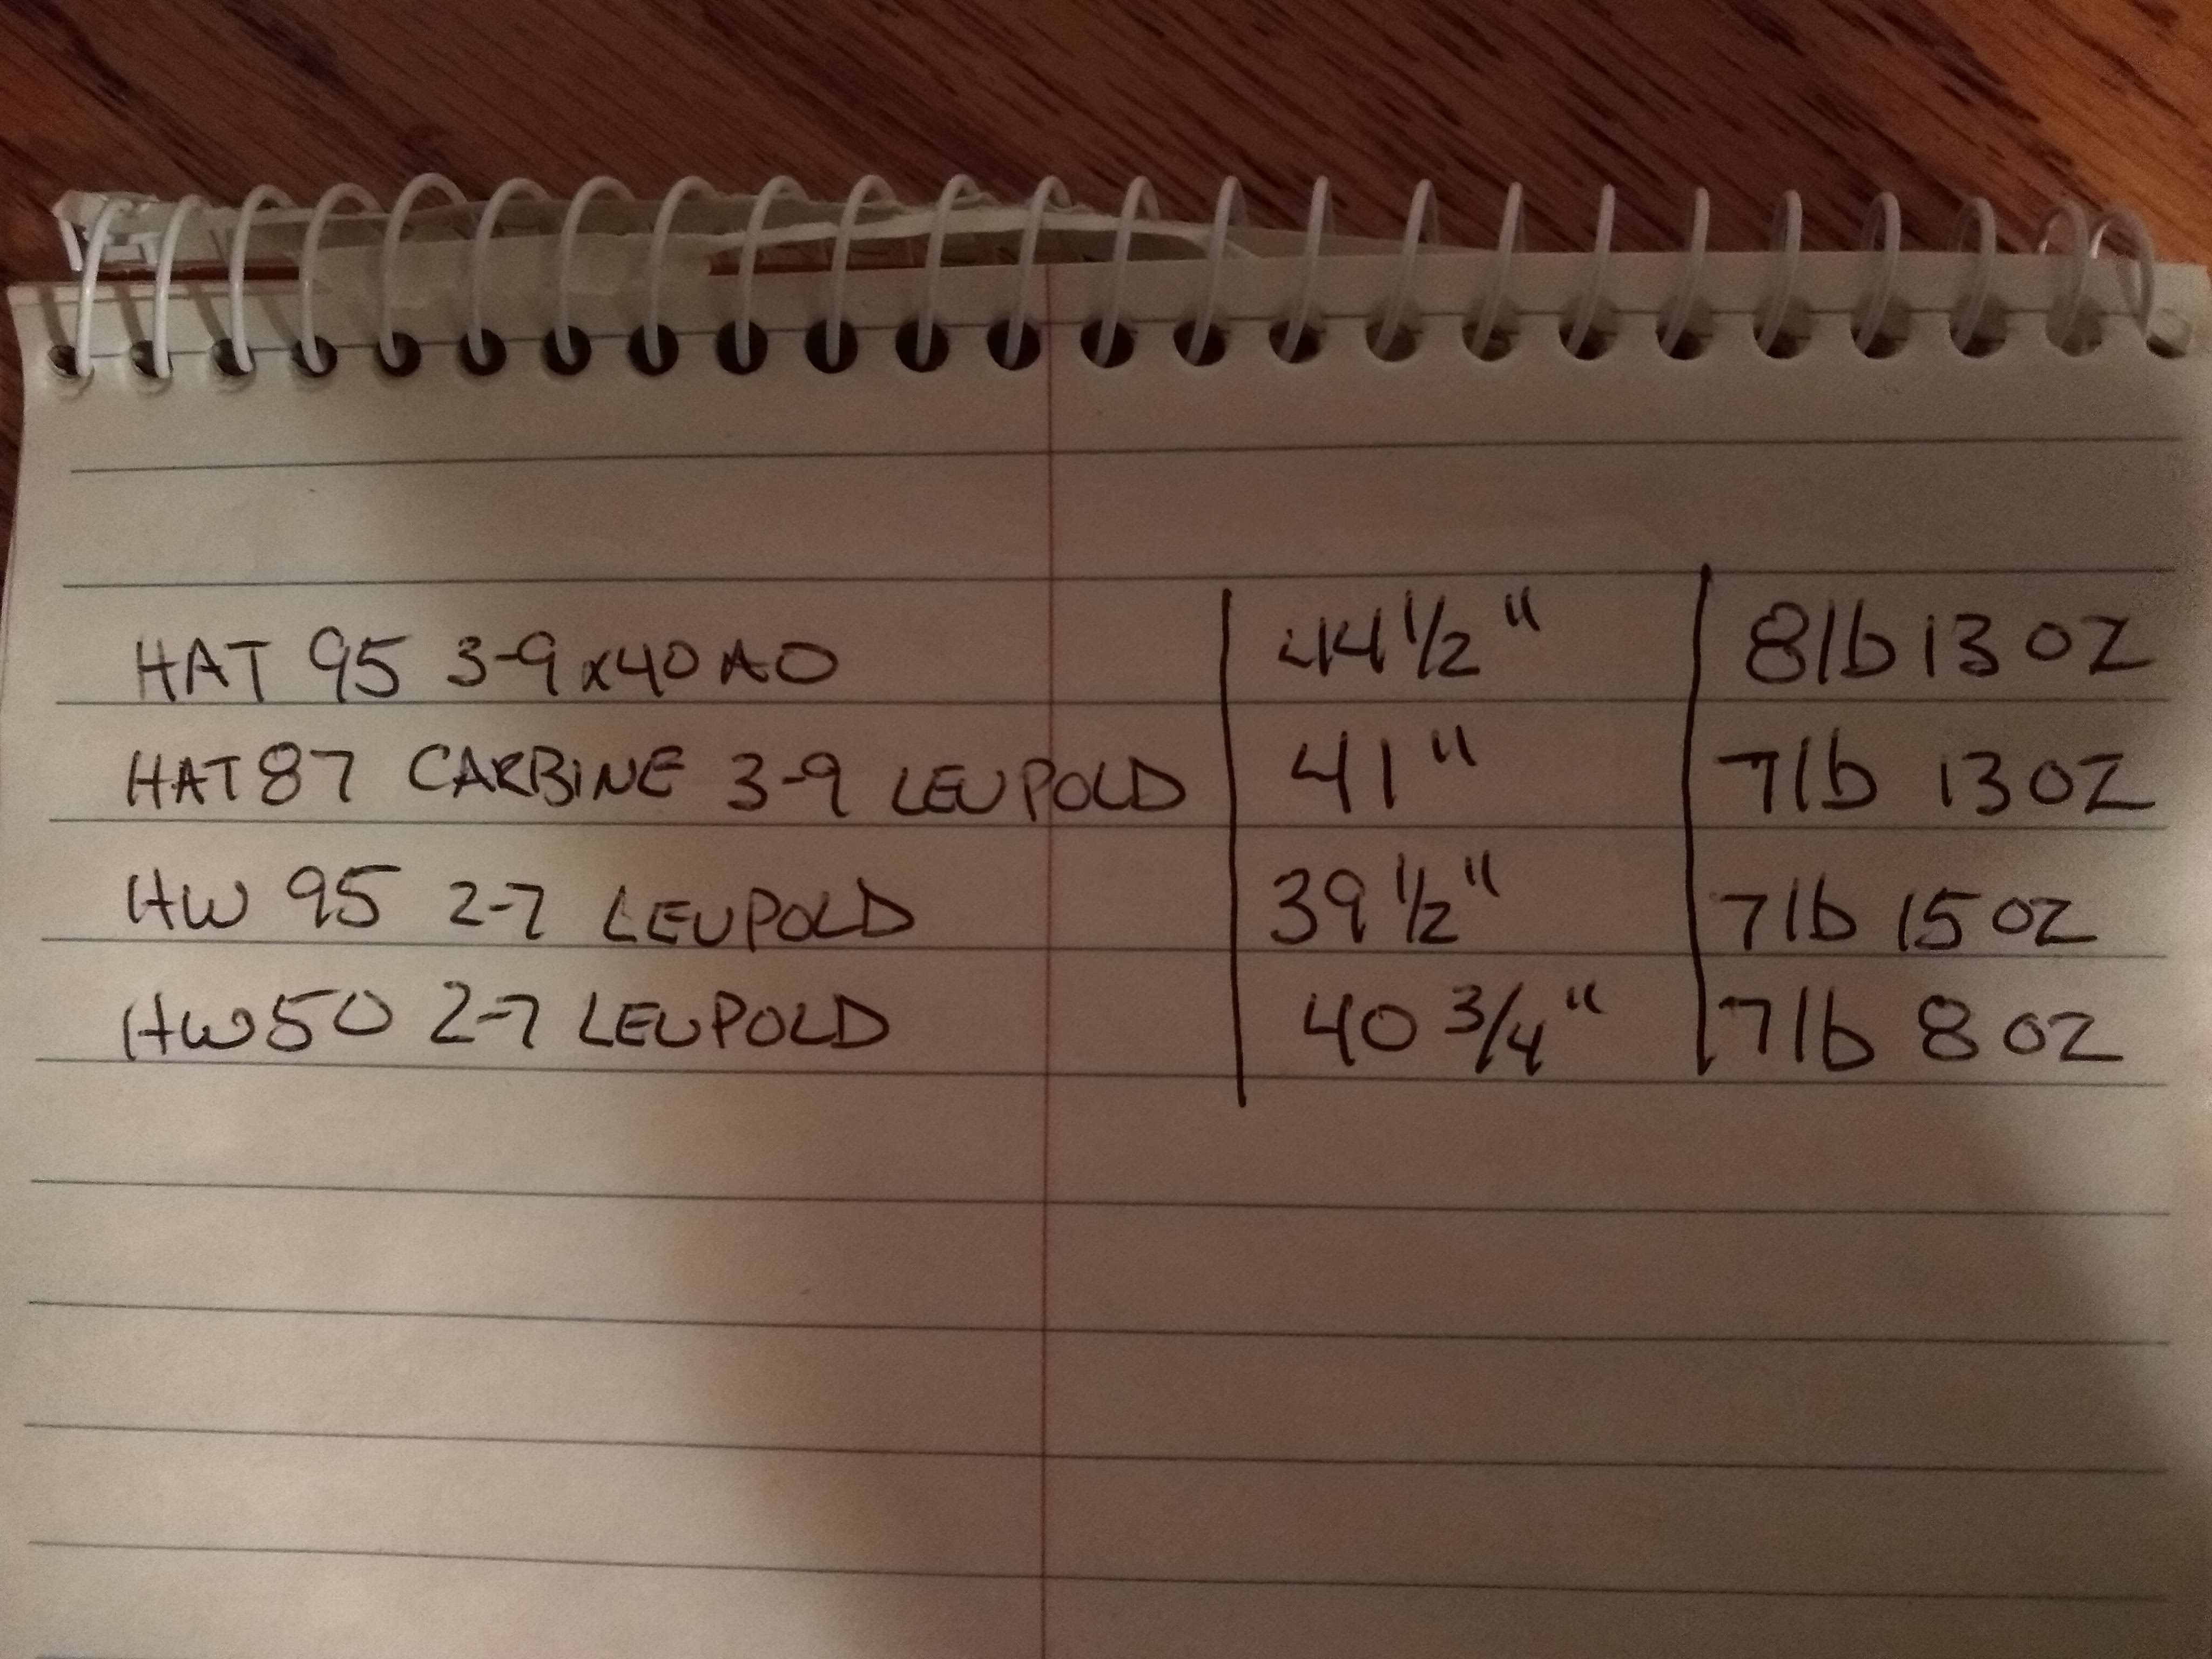 HAT 95 3-9x40 AO | 44 1/2" | 8lb 13 oz
HAT87 CARBINE 3-9 LEUPOLD | 41" | 7lb 13 oz
HW 95 2-7 LEUPOLD | 39 1/2" | 7lb 15 oz
HW50 2-7 LEUPOLD | 40 3/4" | 7lb 8 oz